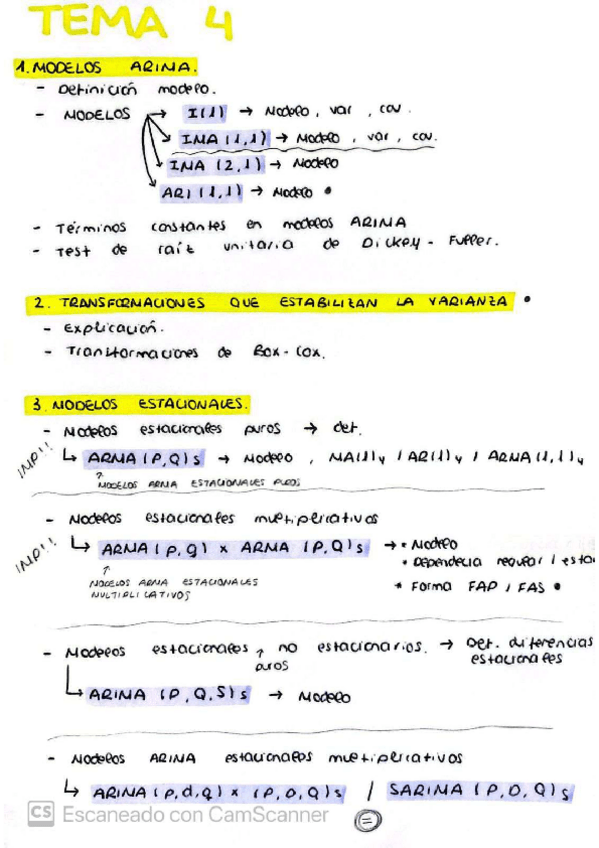 TEMA 4
1. MODELOS ARIMA.
- Definición modelo.
- MODELOS → I(1) → Modelo, var, cov.
IMA (1,1) → Modelo, var, cov.
IMA (2,1) → Modelo
ARI (1,1) → Modelo •
- Términos constantes en modelos ARIMA
- Test de raíz unitaria de Dickey - Fuller.
2. TRANSFORMACIONES QUE ESTABILIZAN LA VARIANZA •
- Explicación.
- Transformaciones de Box-Cox.
3. MODELOS ESTACIONALES.
- Modelos estacionales puros → def.
IMP!! ↳ ARMA (P,Q)s → Modelo, MA(1)4 / AR(1)4 / ARMA(1,1)4
↑ MODELOS ARMA ESTACIONALES PUROS
- Modelos estacionales multiplicativos
IMP!! ↳ ARMA (p,q) x ARMA (P,Q)s → • Modelo
• Dependecia regular / esta
* Forma FAP / FAS •
↑ MODELOS ARMA ESTACIONALES
MULTIPLICATIVOS
- Modelos estacionales ↑ no estacionarios. → Def. diferencias
puros estacionales
↳ ARIMA (P,Q,S)s → Modelo
- Modelos ARIMA estacionales multiplicativos
↳ ARIMA (p,d,q) x (P,D,Q)s / SARIMA (P,D,Q)s
CS Escaneado con CamScanner
=